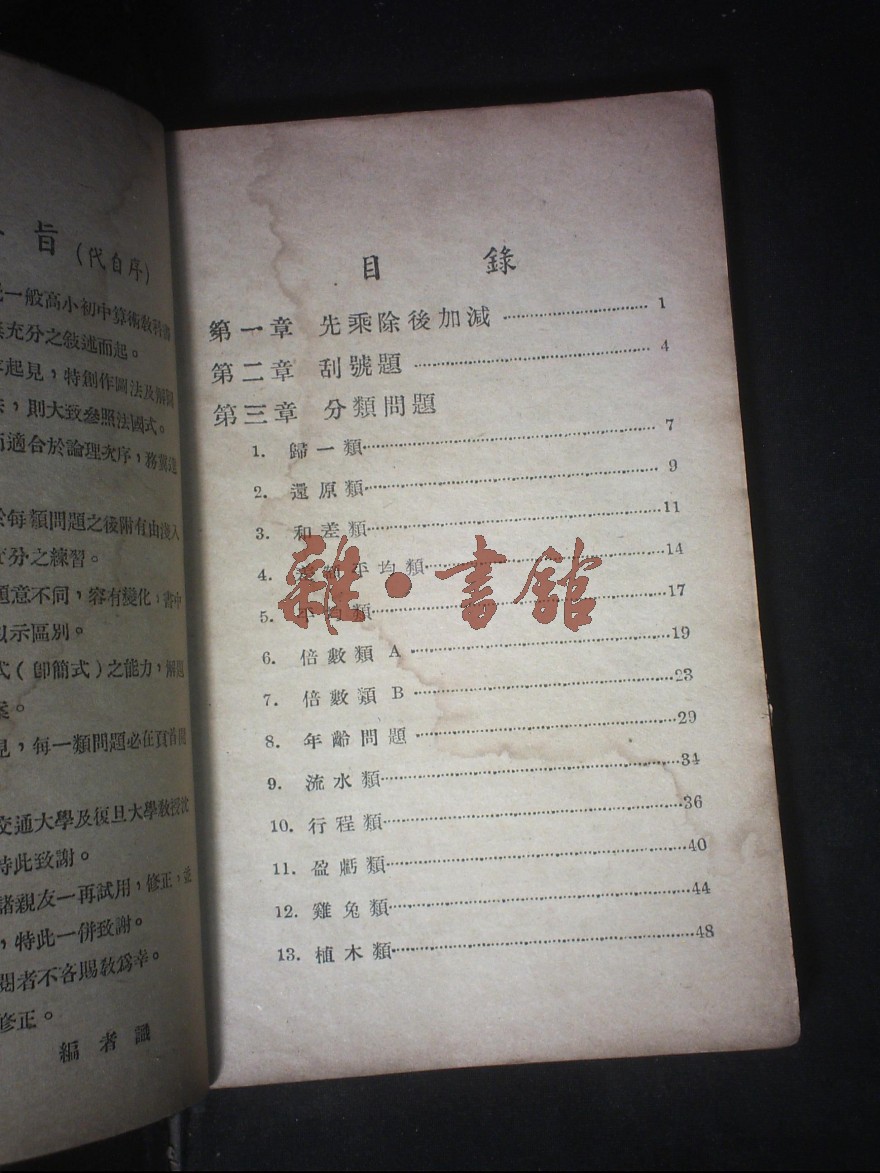 旨（代自序）
一般高小初中算術教科書
充分之敍述而起。
起見，特創作圖法及解
，則大致參照法國式。
而適合於論理次序，務冀達
每類問題之後附有由淺入
充分之練習。
題意不同，容有變化，書中
以示區別。
式（卽簡式）之能力，解題
見，每一類問題必在頁首
交通大學及復旦大學教授沈
特此致謝。
諸親友一再試用，修正，並
，特此一併致謝。
閱者不吝賜教爲幸。
修正。
編者識
目錄
第一章 先乘除後加減 1
第二章 刮號題 4
第三章 分類問題
1. 歸一類 7
2. 還原類 9
3. 和差類 11
4. 平均類 14
5. 類 17
6. 倍數類 A 19
7. 倍數類 B 23
8. 年齡問題 29
9. 流水類 34
10. 行程類 36
11. 盈虧類 40
12. 雞兔類 44
13. 植木類 48
雜·書館